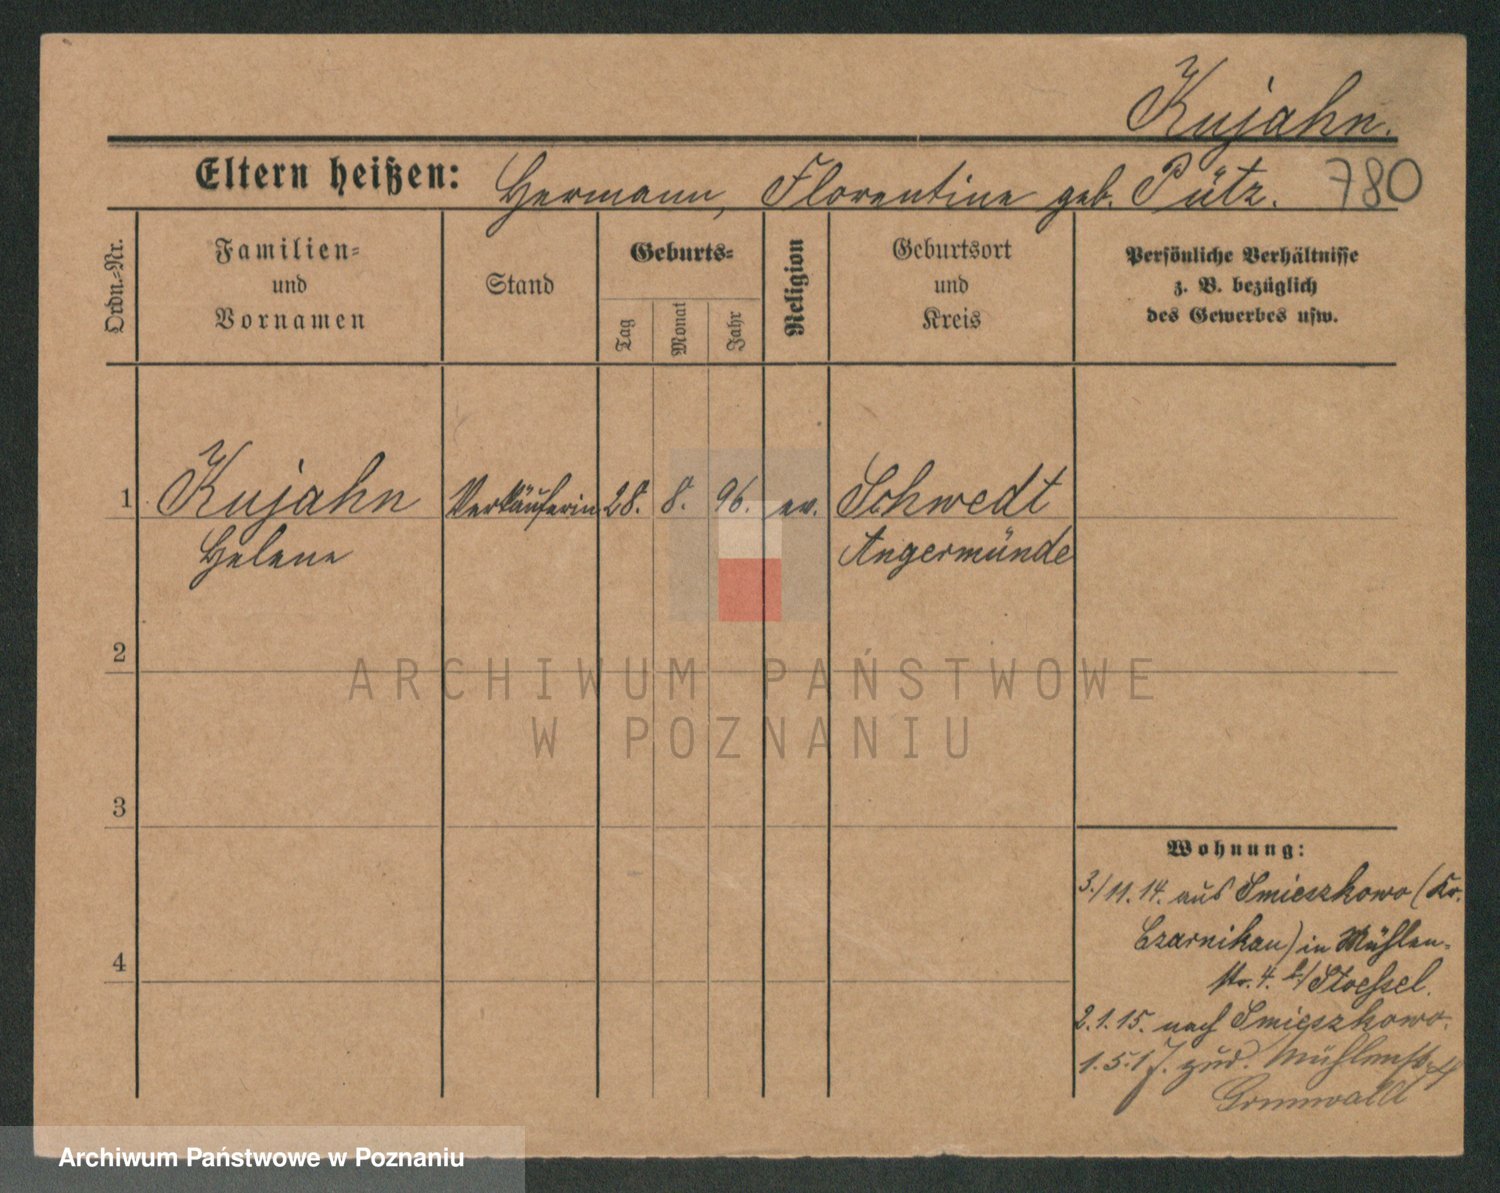 Kujahn.
Eltern heißen: Hermann, Florentine geb. Pütz. 780
Ordn.=Nr.
Familien=
und
Vornamen
Stand
Geburts=
Tag
Monat
Jahr
Religion
Geburtsort
und
Kreis
Persönliche Verhältnisse
z. B. bezüglich
des Gewerbes usw.
1 Kujahn Verkäuferin 28. 8. 96. ev. Schwedt
Helene Angermünde
2
3
4
ARCHIWUM PAŃSTWOWE
W POZNANIU
Wohnung:
3./11.14. aus Smieszkowo (Kr.
Czarnikau) in Mühlen-
str. 4. b/ Stoessel.
2.1.15. nach Smieszkowo.
1.5.17. zur. Mühlenstr. 4
Grunwald
Archiwum Państwowe w Poznaniu